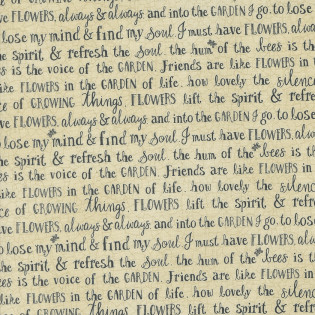 ve FLOWERS, always & always and into the GARDEN I go, to lose
lose my mind & find my Soul. I must have FLOWERS, alway
the spirit, & refresh the Soul. the hum of the bees is the
es is the voice of the GARDEN. Friends are like FLOWERS in t
like FLOWERS in the GARDEN of life. how lovely the silenc
ce of GROWING things. FLOWERS lift the spirit & refre
ve FLOWERS, always & always and into the GARDEN I go, to lose
o lose my mind & find my Soul. I must have FLOWERS, al
the spirit, & refresh the Soul. the hum of the bees is th
es is the voice of the GARDEN. Friends are like FLOWERS in
like FLOWERS in the GARDEN of life. how lovely the silenc
ce of GROWING things. FLOWERS lift the spirit, & refr
ve FLOWERS, always & always and into the GARDEN I go, to los
o lose my mind & find my Soul. I must have FLOWERS, alway
the spirit, & refresh the Soul. the hum of the bees is th
es is the voice of the GARDEN. Friends are like FLOWERS in
like FLOWERS in the GARDEN of life. how lovely the silen
ce of GROWING things. FLOWERS lift the spirit & refr